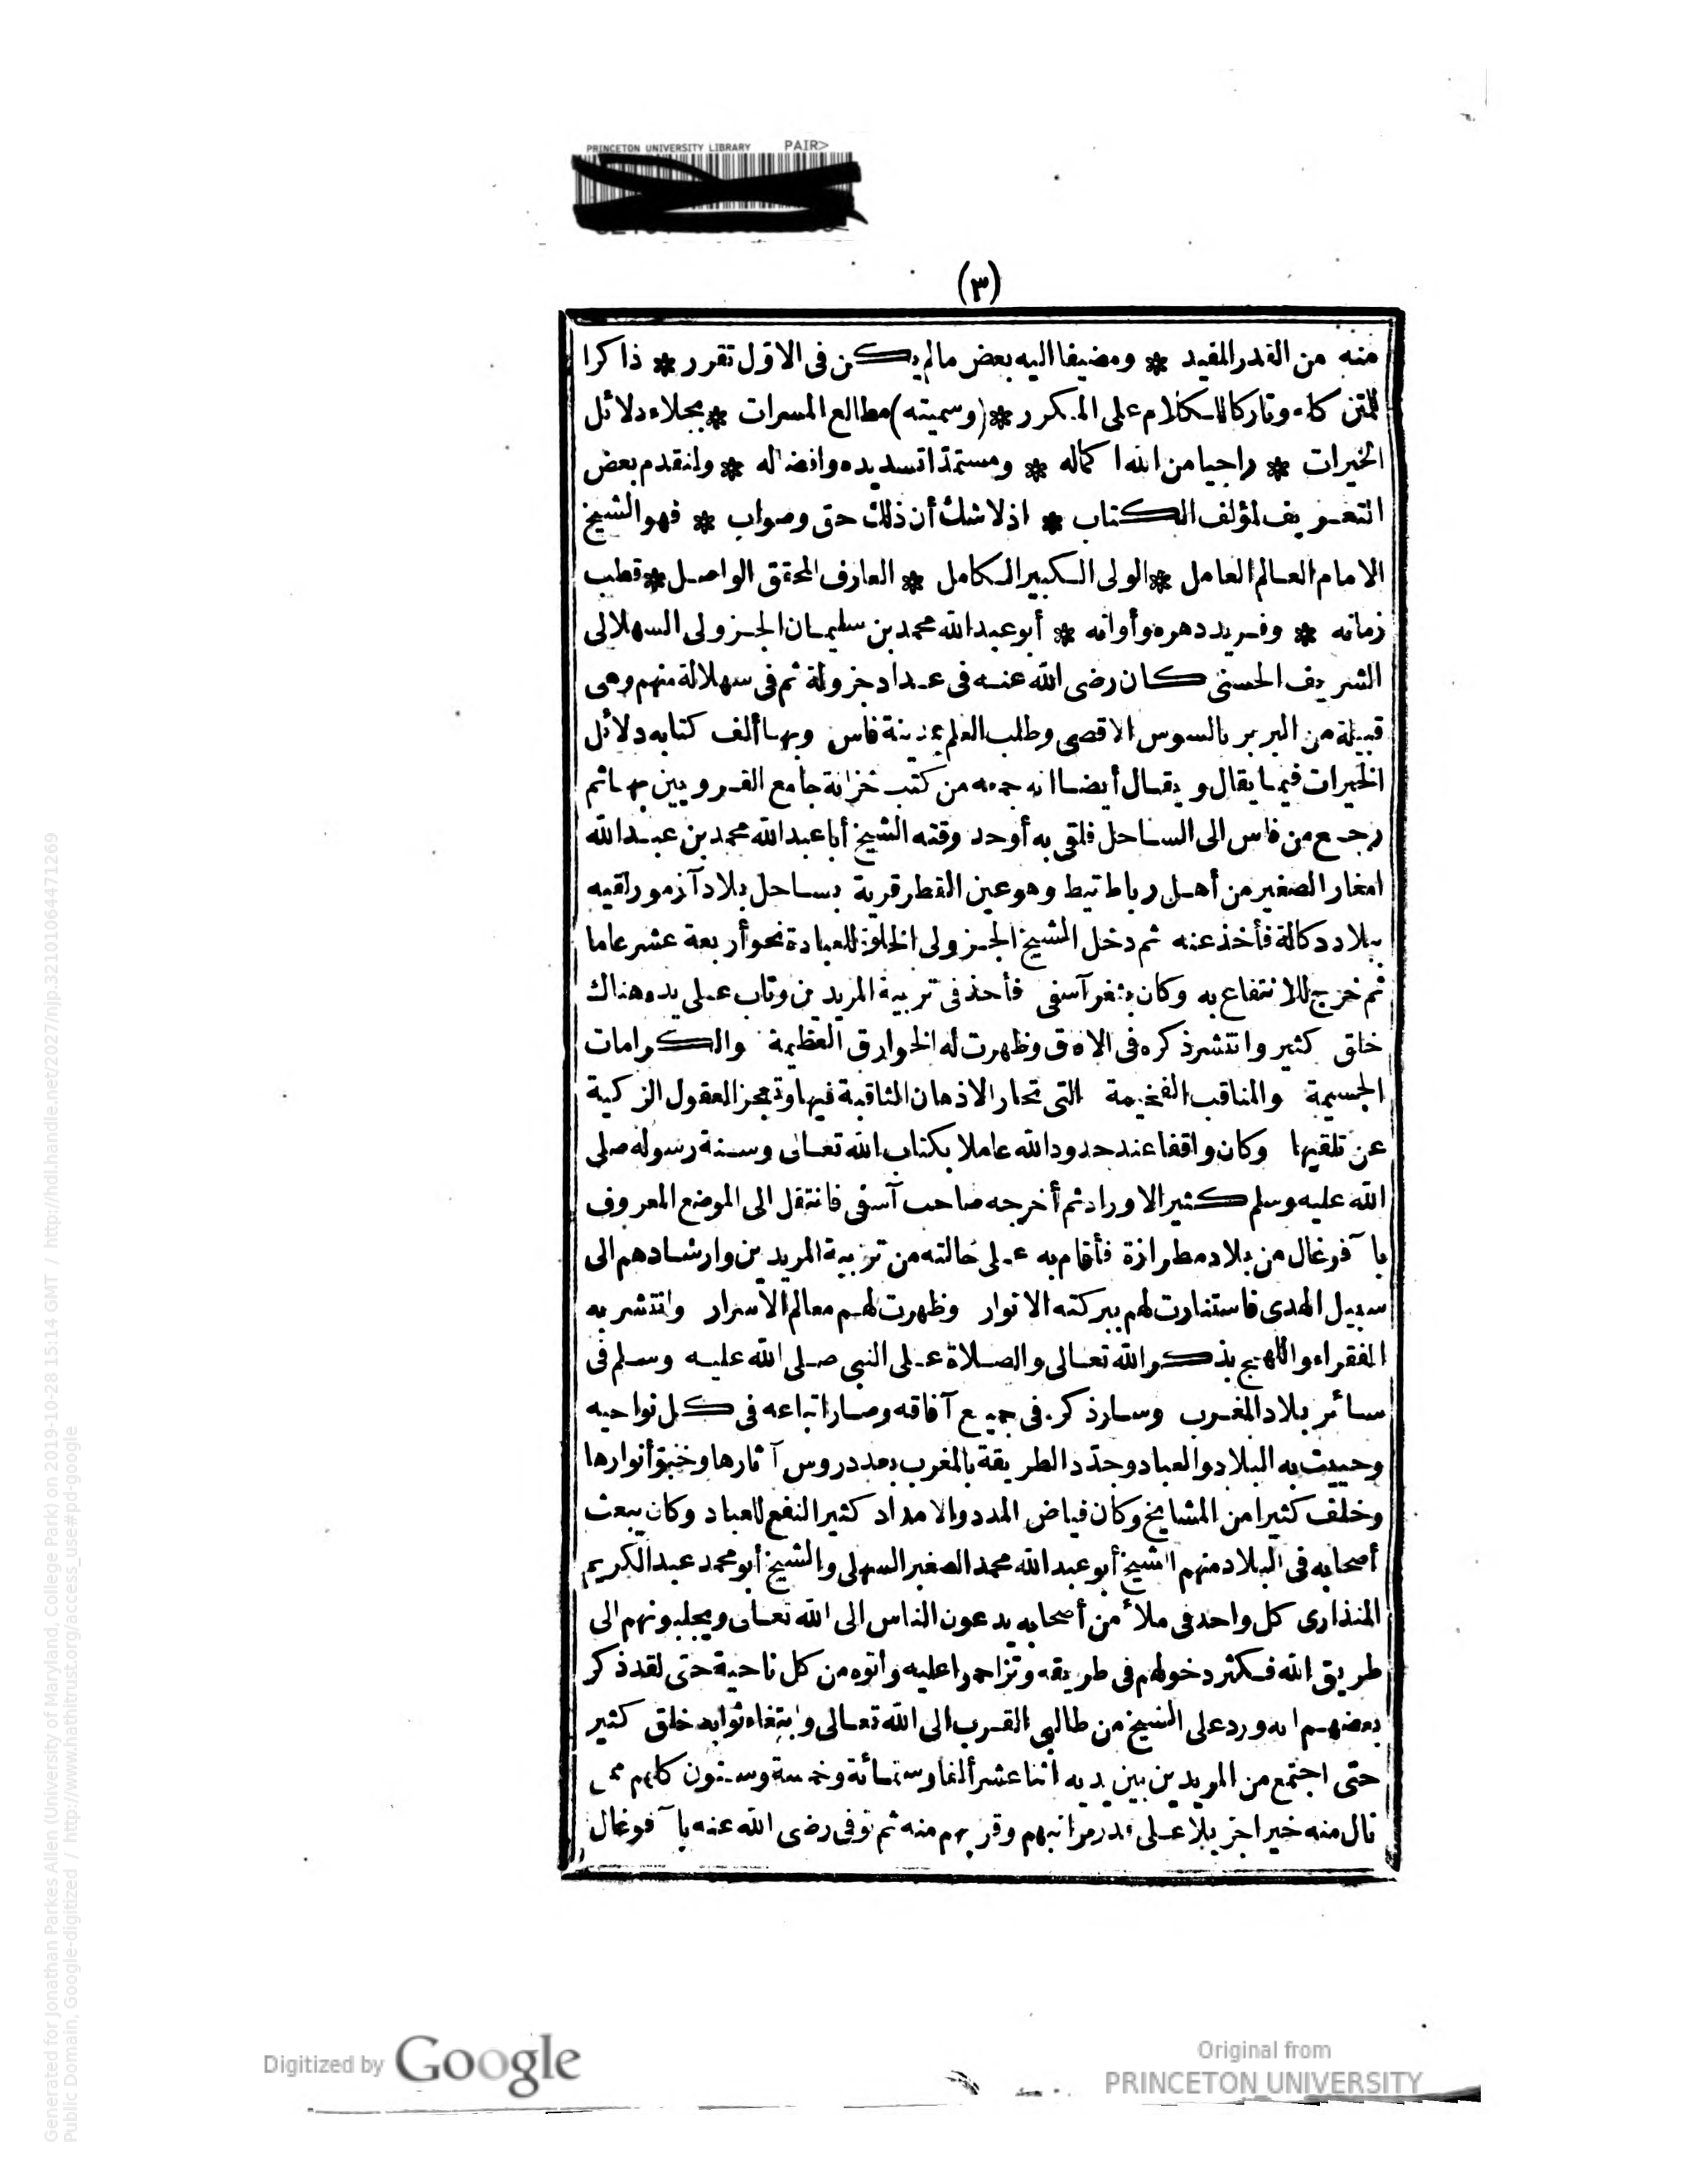 PRINCETON UNIVERSITY LIBRARY PAIR>
(٣)
منه من القدر المفيد * ومضيفا اليه بعض مالم يكن فى الاول تقرر * ذاكرا
للمتن كله وتاركا للكلام على المكرر * (وسميته) مطالع المسرات * بجلاء دلائل
الخيرات * راجيا من الله اكماله * ومستمدا تسديده وافضاله * ولنقدم بعض
التعريف لمؤلف الكتاب * اذ لا شك أن ذلك حق وصواب * فهو الشيخ
الامام العالم العامل * الولى الكبير الكامل * العارف المحقق الواصل * قطب
زمانه * وفريد دهره وأوانه * أبو عبد الله محمد بن سليمان الجزولى السهلالى
الشريف الحسنى كان رضى الله عنه فى عداد جزولة ثم فى سهلالة منهم وهى
قبيلة من البربر بالسوس الاقصى وطلب العلم بمدينة فاس وبها ألف كتابه دلائل
الخيرات فيما يقال ويقال أيضا انه جمعه من كتب خزانة جامع القرويين بها ثم
رجع من فاس الى الساحل فلقى به أوحد وقته الشيخ أبا عبد الله محمد بن عبد الله
امغار الصغير من أهل رباط تيط وهو عين الفطر قرية بساحل بلاد آزمور لقيه
ببلاد دكالة فأخذ عنه ثم دخل الشيخ الجزولى الخلوة للعبادة نحو أربعة عشر عاما
ثم خرج للانتفاع به وكان بثغر آسفى فأخذ فى تربية المريدين وتاب على يده هناك
خلق كثير وانتشر ذكره فى الافق وظهرت له الخوارق العظيمة والكرامات
الجسيمة والمناقب الفخيمة التى تحار الاذهان الثاقبة فيها وتعجز العقول الزكية
عن تلقيها وكان واقفا عند حدود الله عاملا بكتاب الله تعالى وسنة رسوله صلى
الله عليه وسلم كثير الاوراد ثم أخرجه صاحب آسفى فانتقل الى الموضع المعروف
بآفوغال من بلاد مطرازة فأقام به على حالته من تربية المريدين وارشادهم الى
سبيل الهدى فاستنارت لهم ببركته الانوار وظهرت لهم معالم الاسرار وانتشر به
الفقراء واللهج بذكر الله تعالى والصلاة على النبى صلى الله عليه وسلم فى
سائر بلاد المغرب وسار ذكره فى جميع آفاقه وصار اتباعه فى كل نواحيه
وحييت به البلاد والعباد وجدد الطريقة بالمغرب بعد دروس آثارها وخبو أنوارها
وخلف كثيرا من المشايخ وكان فياض المدد والامداد كثير النفع للعباد وكان يبعث
أصحابه فى البلاد منهم الشيخ أبو عبد الله محمد الصغير السهلى والشيخ أبو محمد عبد الكريم
المنذارى كل واحد فى ملأ من أصحابه يدعون الناس الى الله تعالى ويجلبونهم الى
طريق الله فكثر دخولهم فى طريقه وتزاحموا عليه وأتوه من كل ناحية حتى لقد ذكر
بعضهم انه ورد على الشيخ من طالبى القرب الى الله تعالى وابتغاء ثوابه خلق كثير
حتى اجتمع من المريدين بين يديه اثنا عشر ألفا وستمائة وخمسة وستون كلهم ممن
نال منه خيرا جزيلا على قدر مراتبهم وقربهم منه ثم توفى رضى الله عنه بآفوغال
Digitized by Google
Original from
PRINCETON UNIVERSITY
Generated for Jonathan Parkes Allen (University of Maryland, College Park) on 2019-10-28 15:14 GMT / http://hdl.handle.net/2027/njp.32101064471269
Public Domain, Google-digitized / http://www.hathitrust.org/access_use#pd-google